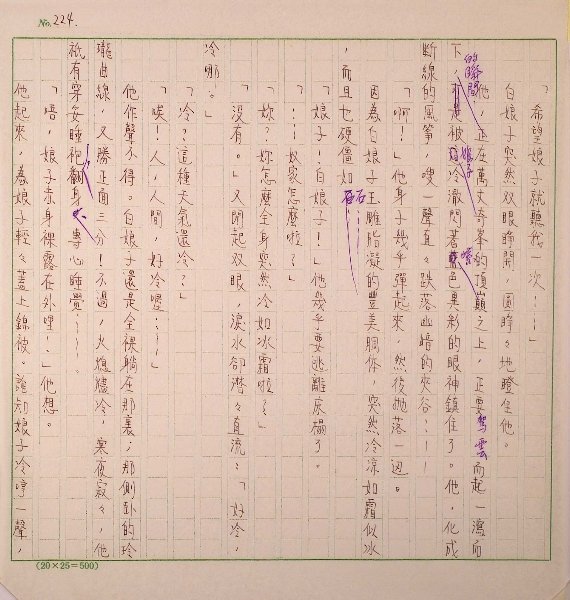 No. 224.
希望娘子就聽我一次!……」
白娘子突然双眼睁開,圓睁々地瞪住他。
他,正在萬丈奇峯的頂巔之上,正要駕雲而起一瀉而
下的瞬間,被娘子冷澈閃著藍色異彩的眼神鎮住了。他,化成
断線的風箏,嗖一聲直々跌落幽暗的夾谷………
「啊!」他身子幾乎彈起來,然後抛落一边。
因為白娘子玉雕脂凝的豐美胴体,突然冷凉如霜似冰
,而且也硬僵如石……
「娘子!白娘子!」他幾乎要逃離床榻了。
「……奴家怎麼啦?」
「妳?妳怎麼全身突然冷如冰霜啦?」
「沒有。」又閉起双眼,淚水卻潸々直流:「好冷,
冷哪。」
「冷?這種天氣還冷?」
「唉!人,人間,好冷喔……」
他作聲不得。白娘子還是全裸躺在那裏;那側卧的玲
瓏曲線,又勝正面三分!不過,火熄爐冷,寒夜寂々,他
祇有穿妥睡袍翻身,專心睡覺……。
「唔,娘子赤身裸露在外哩!」他想。
他起來,為娘子輕々蓋上錦被。誰知娘子冷哼一聲,
(20×25=500)